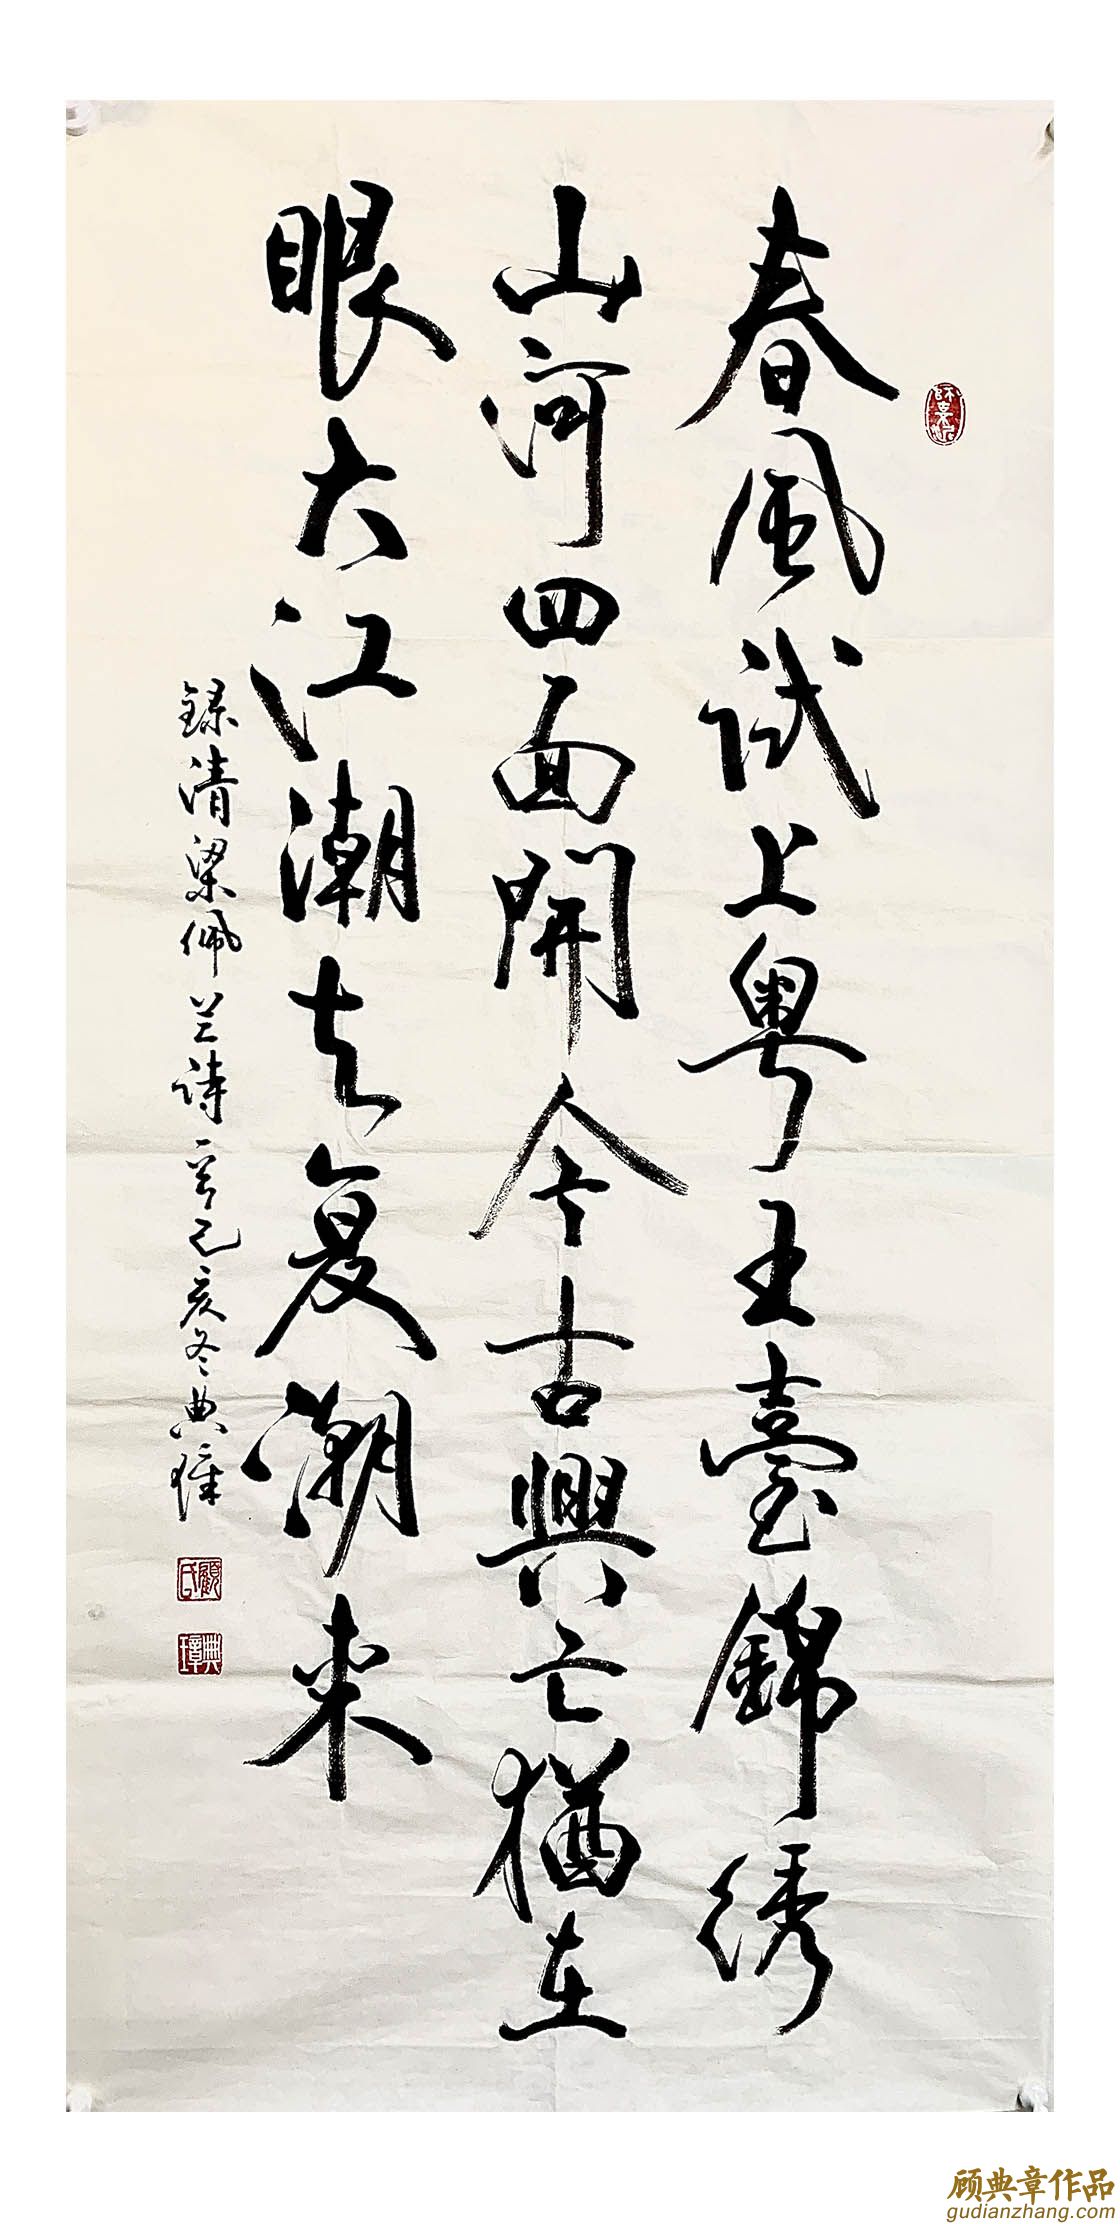 春風試上粵王臺錦绣
山河四面開今古興亡猶在
眼大江潮去复潮来
録清梁佩兰诗一首己亥冬典璋
顧氏
典璋
顾典章作品
gudianzhang.com